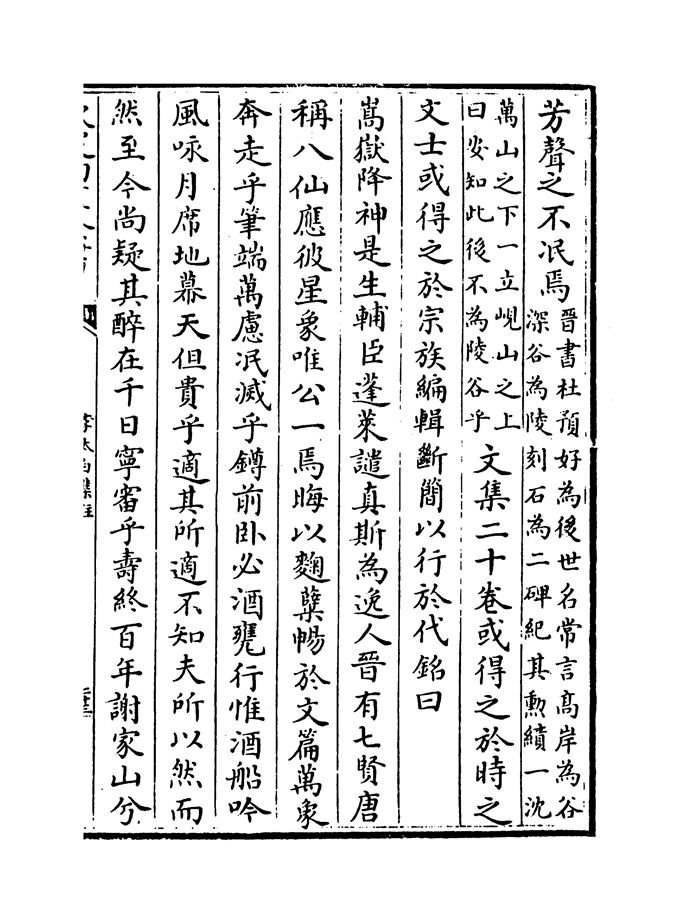 芳聲之不泯焉晉書杜預好為後世名常言髙岸為谷
深谷為陵刻石為二碑紀其勲績一沈
萬山之下一立峴山之上
曰安知此後不為陵谷乎文集二十卷或得之於時之
文士或得之於宗族編輯斷簡以行於代銘曰
嵩嶽降神是生輔臣蓬萊譴真斯為逸人晉有七賢唐
稱八仙應彼星象唯公一焉晦以麴糵暢於文篇萬象
奔走乎筆端萬慮泯滅乎罇前卧必酒甕行惟酒船吟
風咏月席地幕天但貴乎適其所適不知夫所以然而
然至今尚疑其醉在千日寧審乎壽終百年謝家山兮
李太白集注